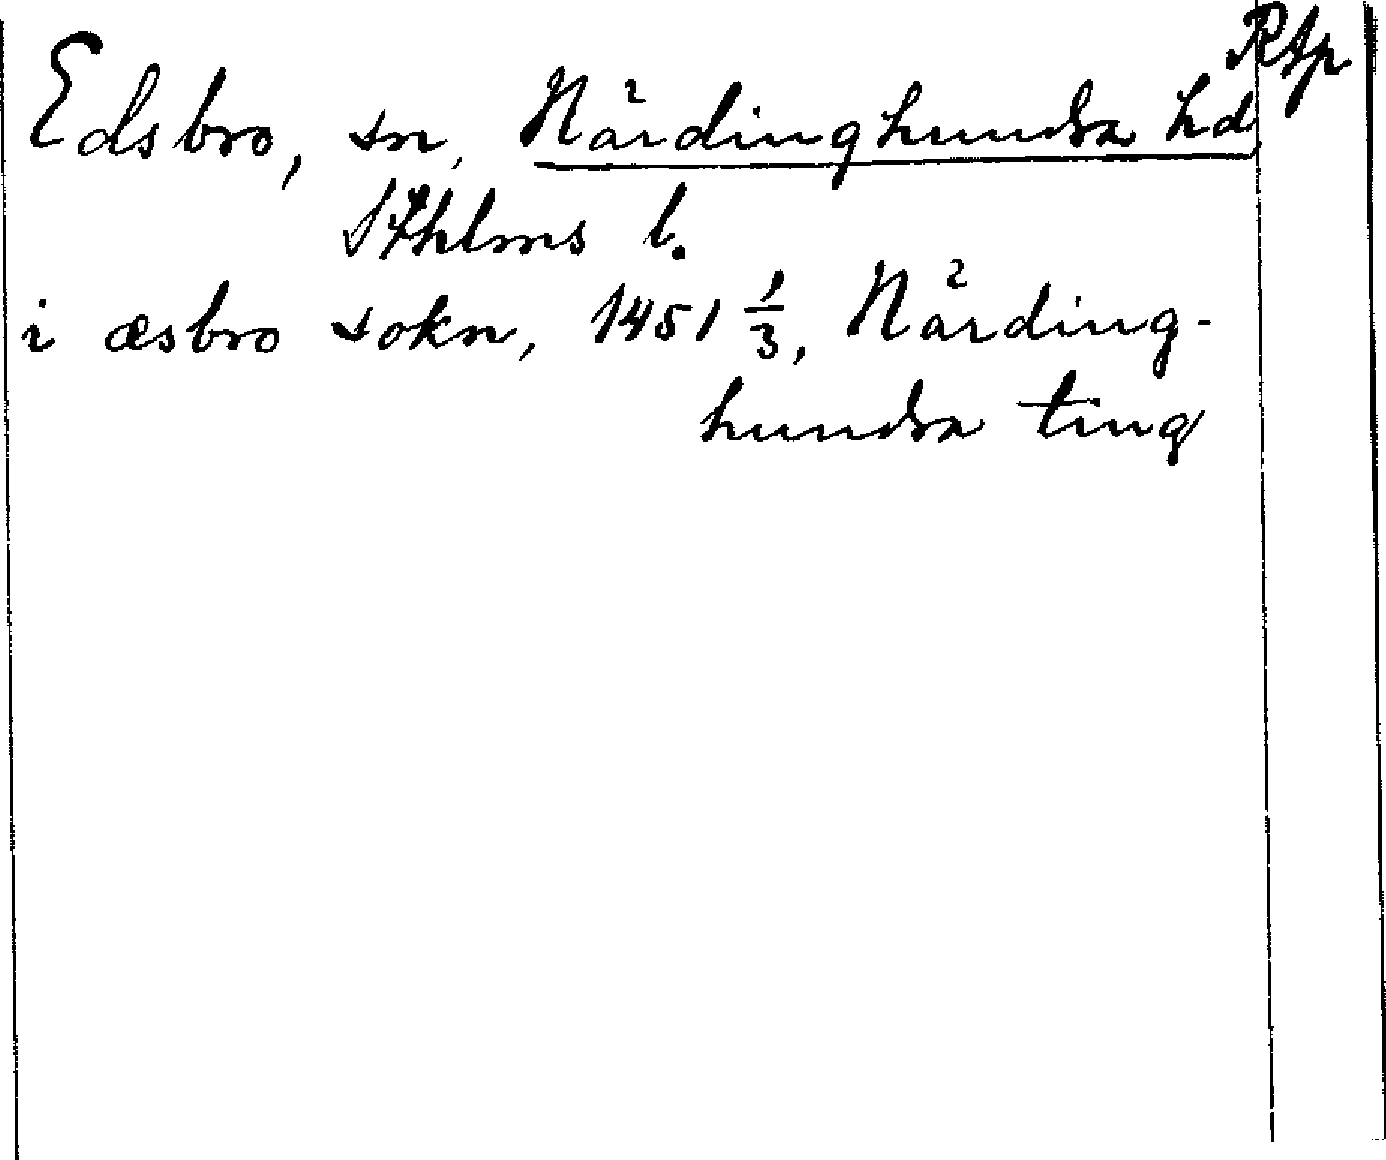 RAp
Edsbro, sn, Närdinghundra hd
Sthlms l.
i æsbro sokn, 1451 1/3, Närding-
hundra ting